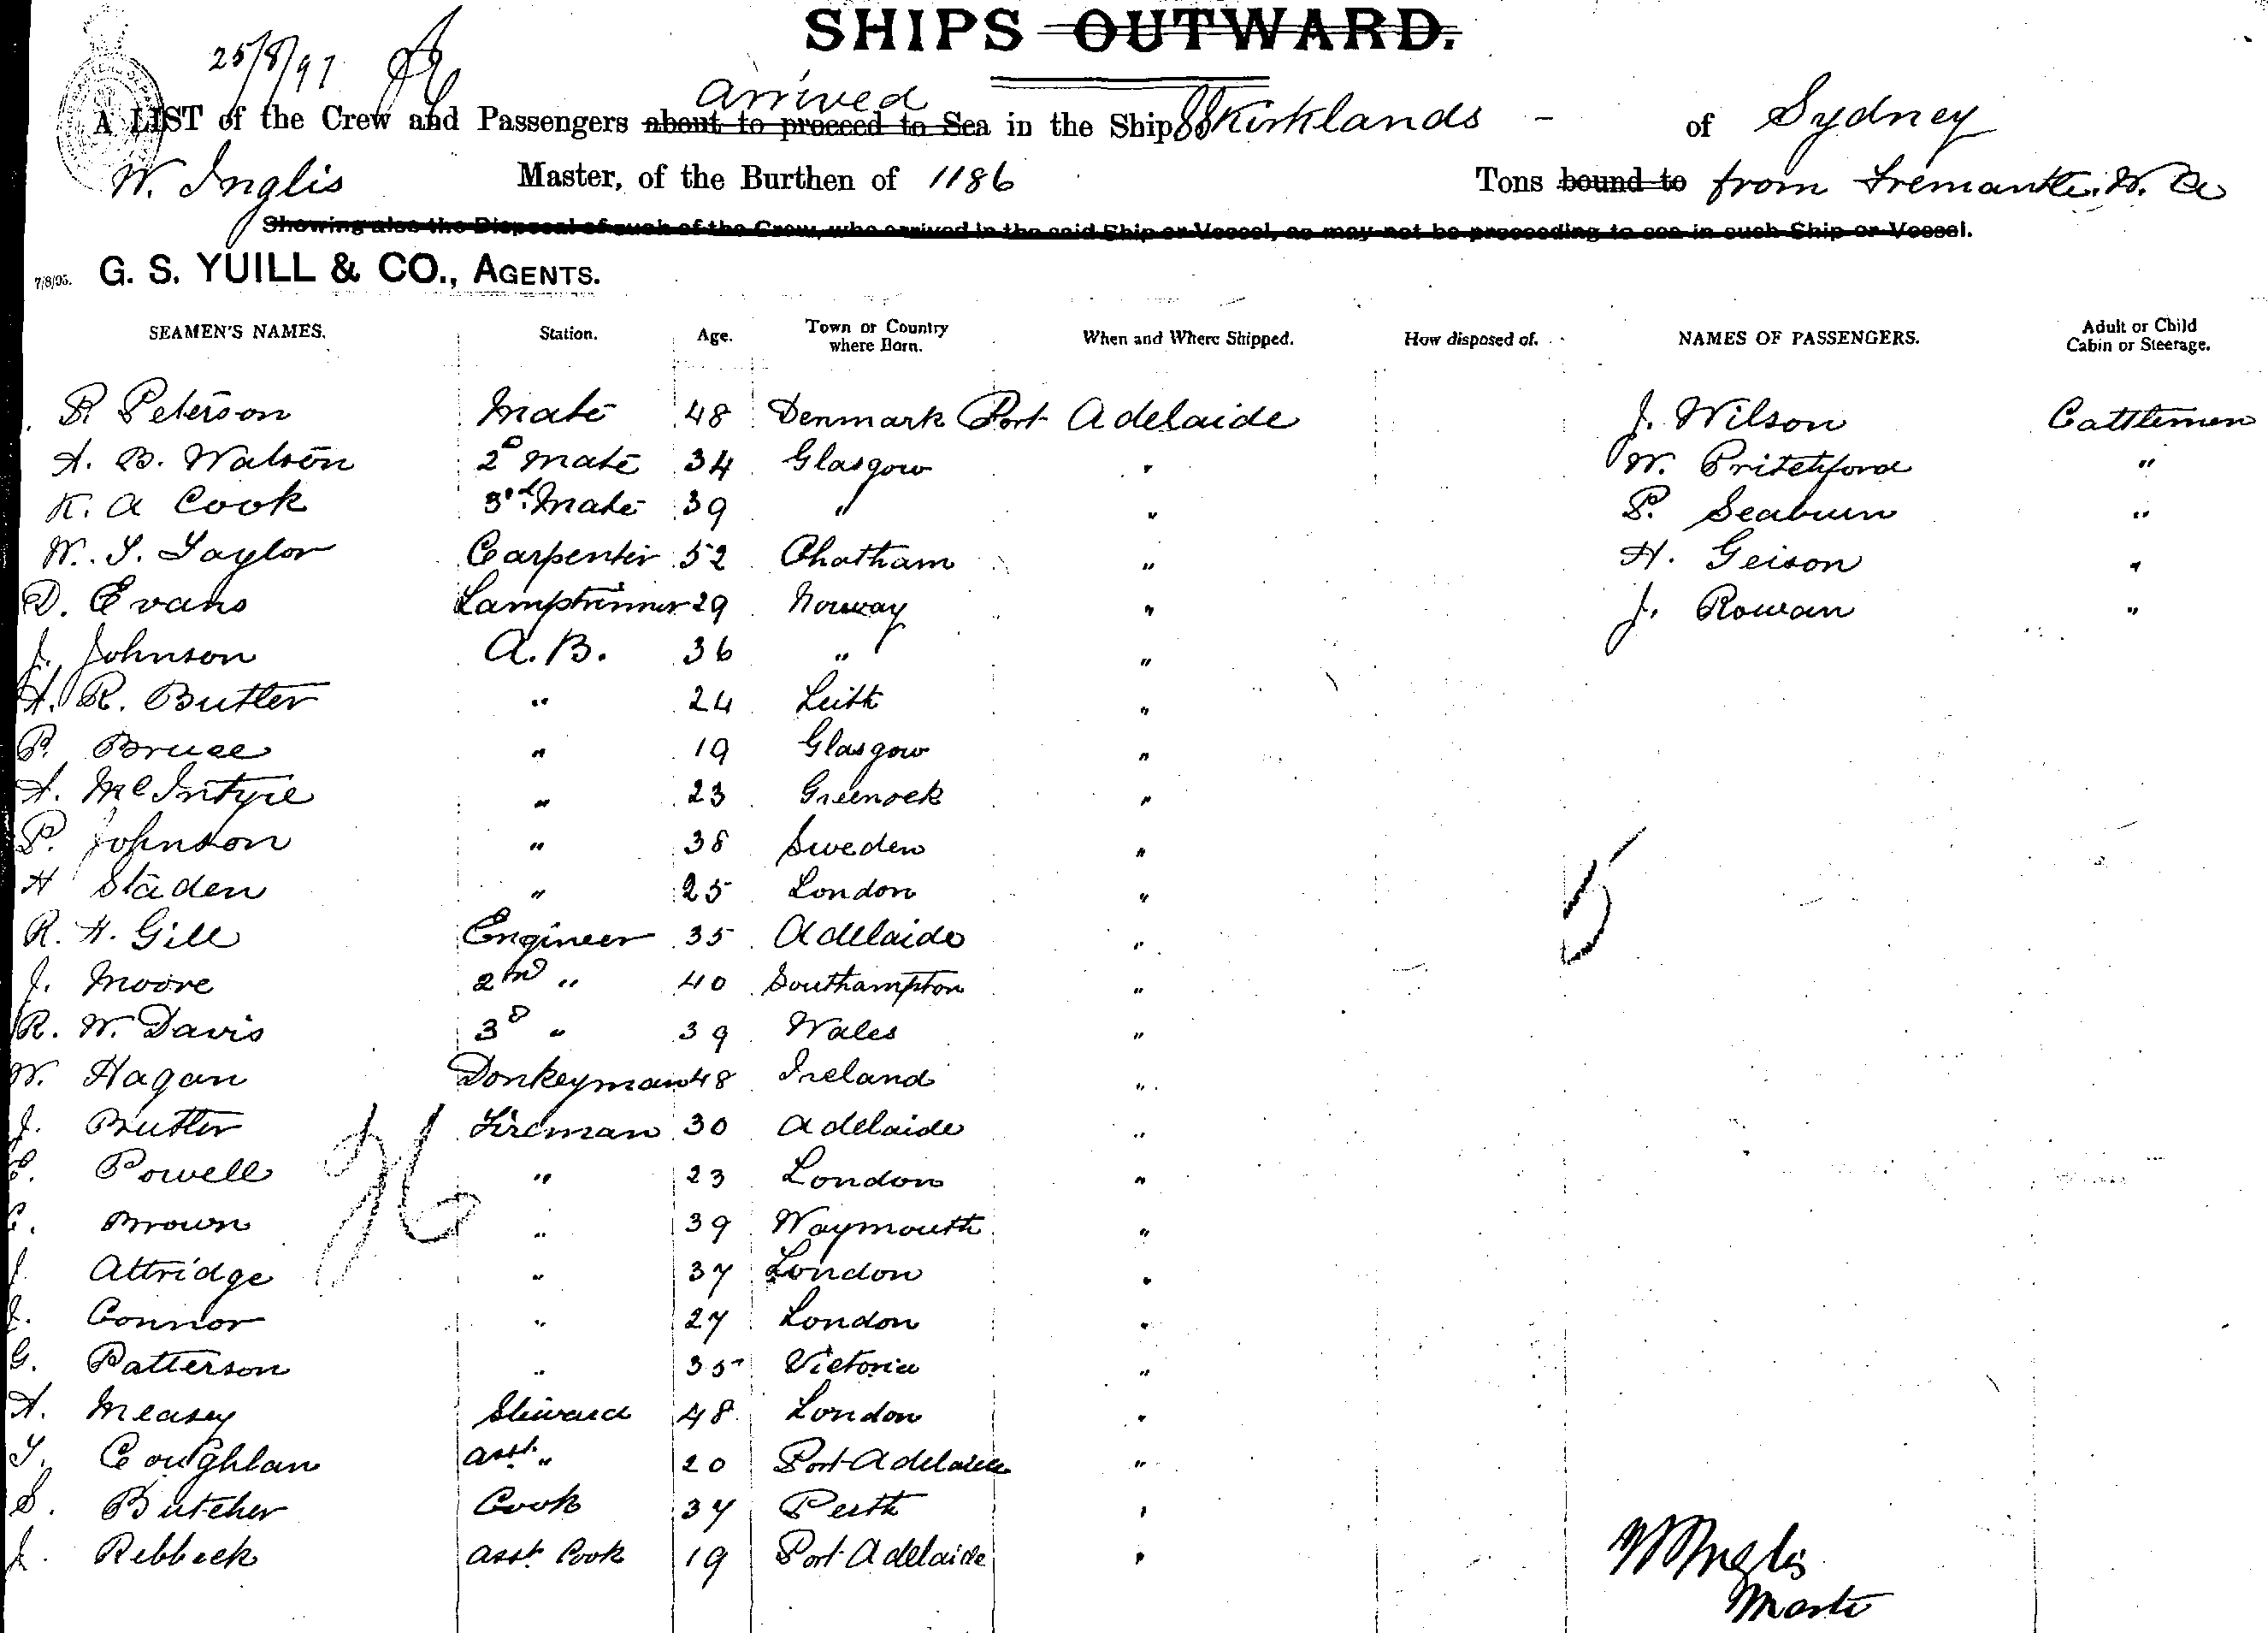 SHIPS OUTWARD.
25/8/97
arrived
A LIST of the Crew and Passengers about to proceed to Sea in the Ship SS Kirklands - of Sydney
W. Inglis Master, of the Burthen of 1186 Tons bound to from Fremantle. W. A
Showing also the Disposal of such of the Crew, who arrived in the said Ship or Vessel, as may not be proceeding to sea in such Ship or Vessel.
7/8/95. G. S. YUILL & CO., AGENTS.
SEAMEN'S NAMES. Station. Age. Town or Country where Born. When and Where Shipped. How disposed of. NAMES OF PASSENGERS. Adult or Child Cabin or Steerage.
P. Peterson Mate 48 Denmark Port Adelaide J. Wilson Cattlemen
A. B. Watson 2d Mate 34 Glasgow " W. Pritchford "
K. A Cook 3rd. Mate 39 " " P. Seaburn "
W. T. Taylor Carpenter 52 Chatham " H. Geison "
D. Evans Lamptrimmer 29 Norway " J. Rowan "
J. Johnson A.B. 36 " "
A. R. Butler " 24 Leith "
P. Bruce " 19 Glasgow "
A. McIntyre " 23 Greenock "
P. Johnson " 38 Sweden "
H Staden " 25 London "
5
R. H. Gill Engineer 35 Adelaide "
J. Moore 2nd " 40 Southampton "
R. W. Davis 3d " 39 Wales "
W. Hagan Donkeyman 48 Ireland "
J. Butler Fireman 30 Adelaide "
Powell " 23 London "
26
Brown " 39 Waymouth "
J Attridge " 37 London "
J. Connor " 27 London "
G. Patterson " 35 Victoria "
A. Measey Steward 48 London "
T. Coughlan asst. " 20 Port Adelaide "
S. Butcher Cook 37 Perth "
J. Rebbeck asst Cook 19 Port Adelaide "
W Inglis
Master